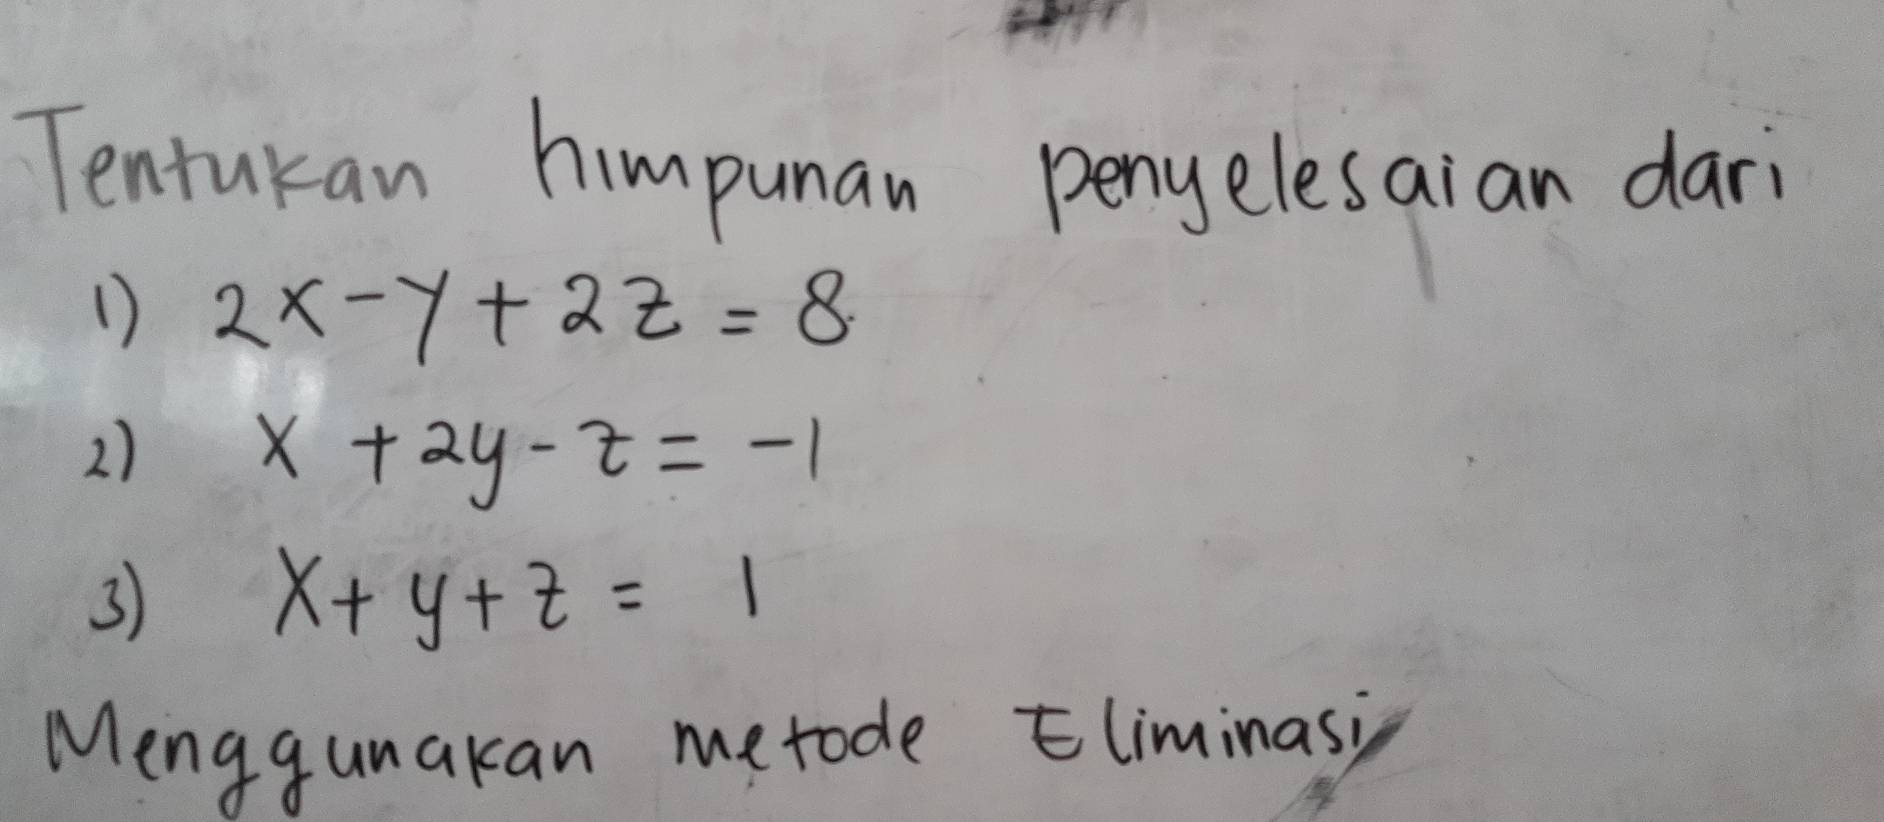 Tentukan himpunan penyelesaian dari
1) 2x-y+2z = 8
2) x +2y-z = -1
3) x+y+z = 1
Menggunakan metode Eliminasi